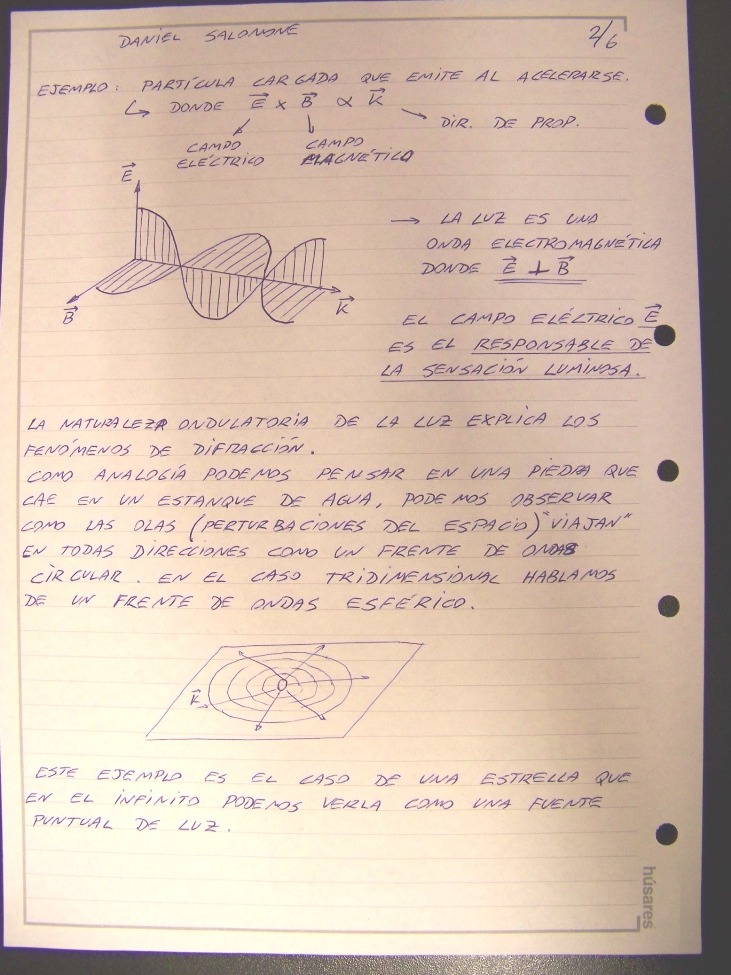 DANIEL SALOMONE
2/6
EJEMPLO: PARTÍCULA CARGADA QUE EMITE AL ACELERARSE.
↳ DONDE E⃗ x B⃗ ∝ K⃗
DIR. DE PROP.
CAMPO ELÉCTRICO
CAMPO MAGNÉTICO
E⃗
B⃗
K⃗
→ LA LUZ ES UNA
ONDA ELECTROMAGNÉTICA
DONDE E⃗ ⊥ B⃗
EL CAMPO ELÉCTRICO E⃗
ES EL RESPONSABLE DE
LA SENSACIÓN LUMINOSA.
LA NATURALEZA ONDULATORIA DE LA LUZ EXPLICA LOS
FENÓMENOS DE DIFRACCIÓN.
COMO ANALOGÍA PODEMOS PENSAR EN UNA PIEDRA QUE
CAE EN UN ESTANQUE DE AGUA, PODEMOS OBSERVAR
COMO LAS OLAS (PERTURBACIONES DEL ESPACIO) "VIAJAN"
EN TODAS DIRECCIONES COMO UN FRENTE DE ONDAS
CÍRCULAR. EN EL CASO TRIDIMENSIONAL HABLAMOS
DE UN FRENTE DE ONDAS ESFÉRICO.
K⃗
ESTE EJEMPLO ES EL CASO DE UNA ESTRELLA QUE
EN EL INFINITO PODEMOS VERLA COMO UNA FUENTE
PUNTUAL DE LUZ.
húsares